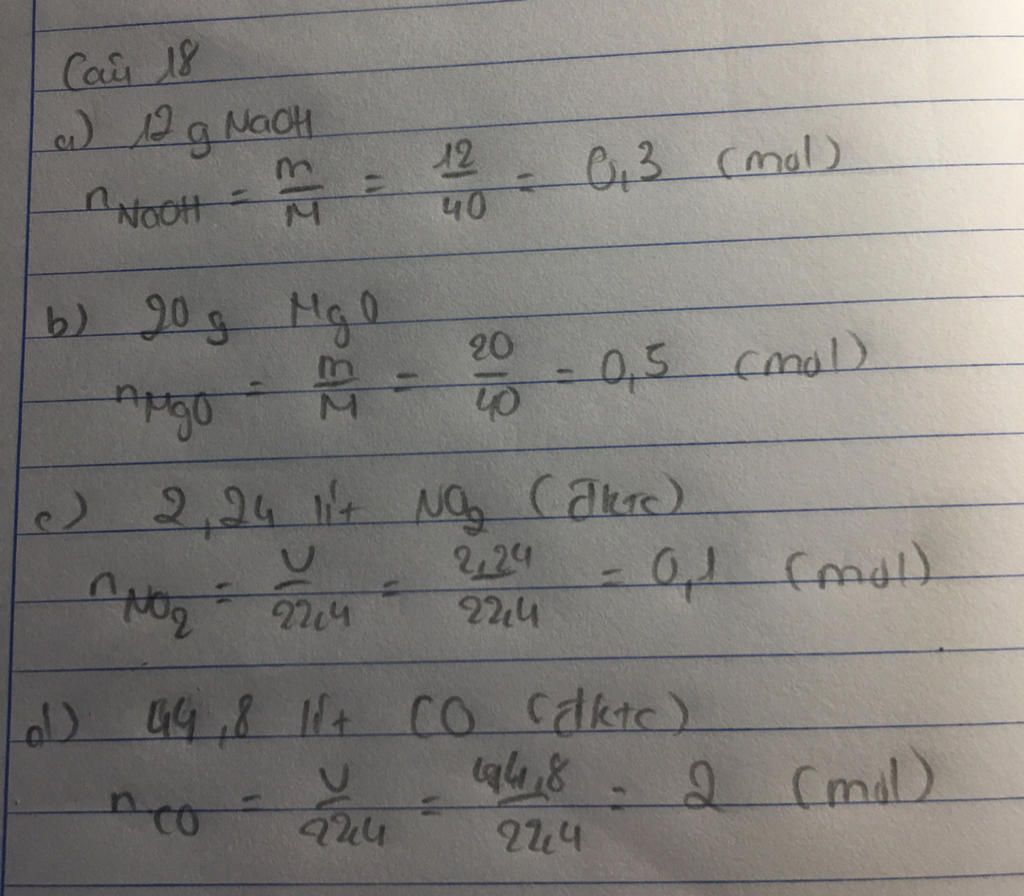 Câu 18
a) 12 g NaOH
n NaOH = m/M = 12/40 = 0,3 (mol)
b) 20 g MgO
n MgO = m/M = 20/40 = 0,5 (mol)
c) 2,24 lít NO2 (đktc)
n NO2 = V/22,4 = 2,24/22,4 = 0,1 (mol)
d) 44,8 lít CO (đktc)
n CO = V/22,4 = 44,8/22,4 = 2 (mol)